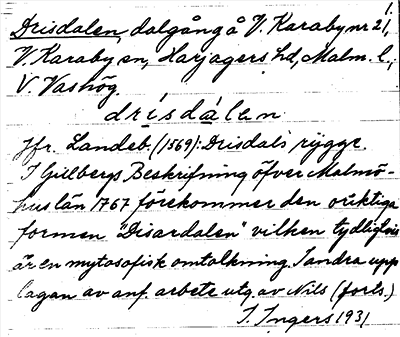 1.
Drisdalen, dalgång å V. Karaby nr 21,
V. Karaby sn, Harjagers hd, Malm. l.,
V. Vashög
drísdàlen
Jfr. Landeb. (1569): Drisdals rygge.
I Gillbergs Beskrifning öfver Malmö-
hus län 1767 förekommer den oriktiga
formen "Disardalen" vilken tydligtvis
är en mytosofisk omtolkning. I andra upp
lagan av anf. arbete utg. av Nils (forts.)
I. Ingers 1931